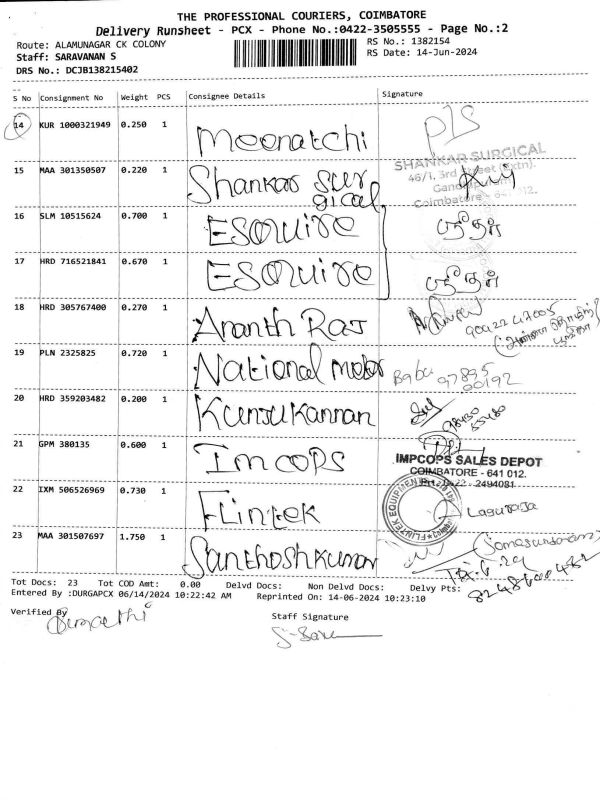 THE PROFESSIONAL COURIERS, COIMBATORE
Delivery Runsheet - PCX - Phone No.:0422-3505555 - Page No.:2
Route: ALAMUNAGAR CK COLONY
RS No.: 1382154
Staff: SARAVANAN S
RS Date: 14-Jun-2024
DRS No.: DCJB138215402
S No Consignment No Weight PCS Consignee Details Signature
14 KUR 1000321949 0.250 1 Meenatchi
15 MAA 301350507 0.220 1 Shankar Sur
gical
SHANKAR SURGICAL
46/1, 3rd Street (Extn).
Coimbatore - 641 012.
16 SLM 10515624 0.700 1 ESQUIRE ஸ்ரீதர்
17 HRD 716521841 0.670 1 ESQUIRE ஸ்ரீதர்
18 HRD 305767400 0.270 1 Ananth Raj
19 PLN 2325825 0.720 1 National motor Babu 97895
00192
20 HRD 359203482 0.200 1 Kunjukannan
21 GPM 380135 0.600 1 Imcops
IMPCOPS SALES DEPOT
COIMBATORE - 641 012.
2494081
22 IXM 506526969 0.730 1 Flintek FLINTEK EQUIPMENT
23 MAA 301507697 1.750 1 Santhoshkumar
8248600482
Tot Docs: 23 Tot COD Amt: 0.00 Delvd Docs: Non Delvd Docs: Delvy Pts:
Entered By :DURGAPCX 06/14/2024 10:22:42 AM Reprinted On: 14-06-2024 10:23:10
Verified By
Staff Signature